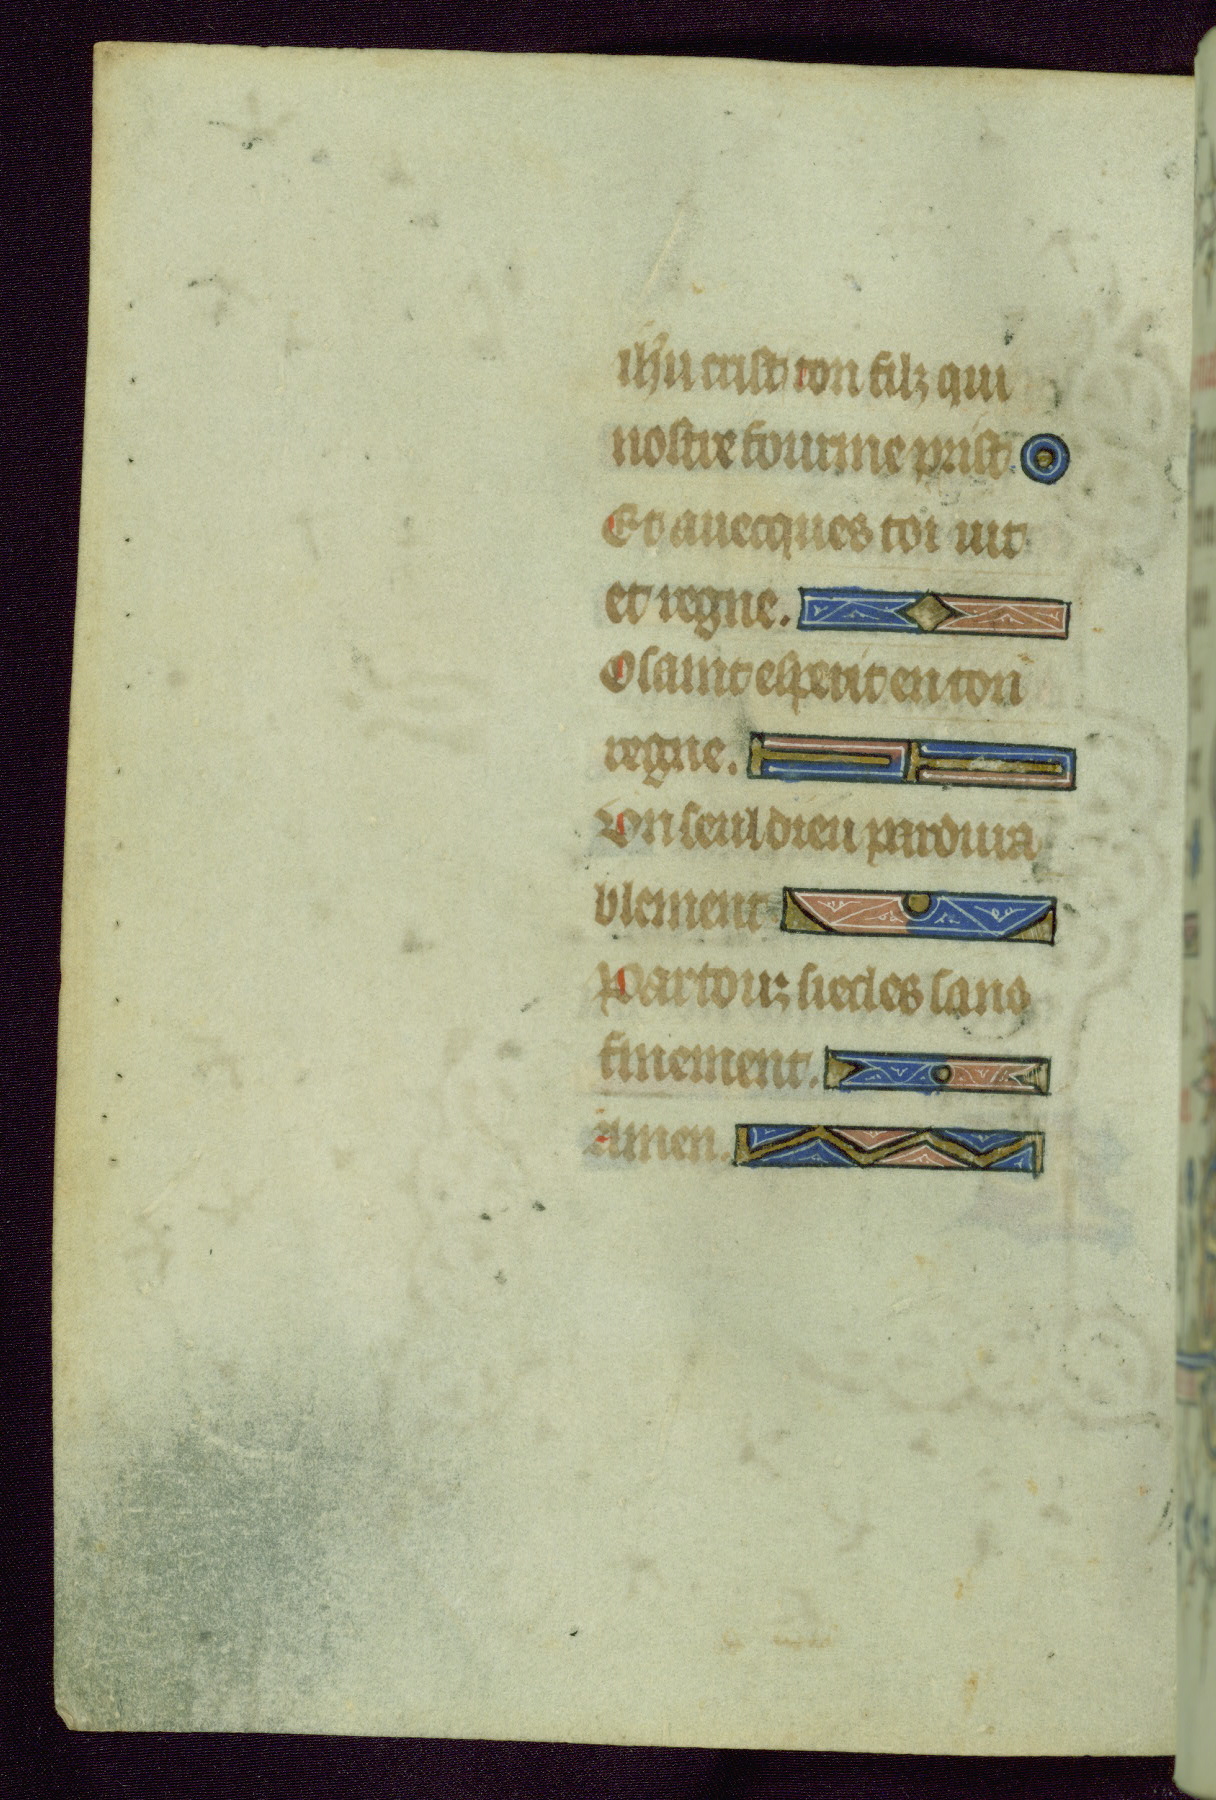 ihu crist ton filz qui
nostre fourme prist.
Et auecques toi uit
et regne.
O saint esperit en ton
regne.
Un seul dieu pardura
blement
Par touz siecles sans
finement.
Amen.